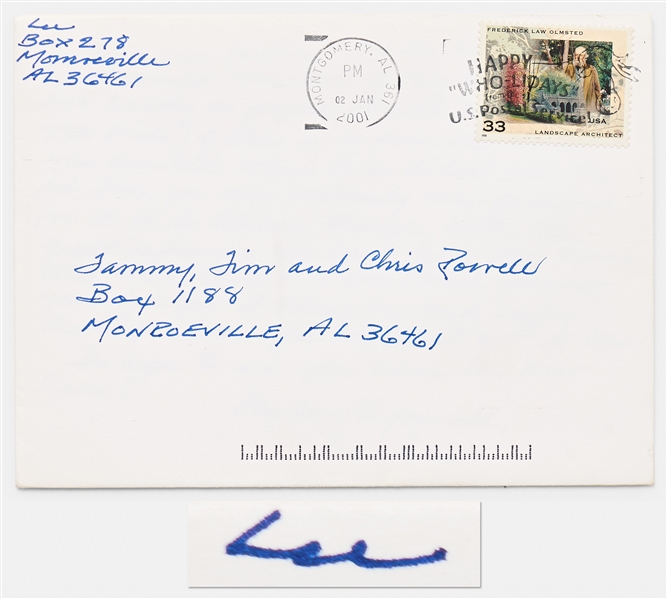 Lee
Box 278
Monroeville
AL 36461
MONTGOMERY, AL 361
PM
02 JAN
2001
HAPPY
"WHO-LIDAYS"
from the
U.S. Postal Service!
FREDERICK LAW OLMSTED
33
USA
LANDSCAPE ARCHITECT
Tammy, Tim and Chris Powell
Box 1188
MONROEVILLE, AL 36461
Lee